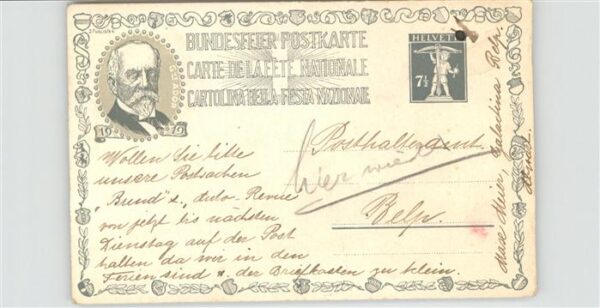 BUNDESFEIER-POSTKARTE
CARTE DE LA FÊTE NATIONALE
CARTOLINA DELLA FESTA NAZIONALE
HELVETIA
7½
1919
Wollen Sie bitte
unsere Postsachen
"Bund" &. Auto. Revue
von jetzt bis nächsten
Dienstag auf der Post
halten da wir in den
Ferien sind &. der Briefkasten zu klein.
Posthalteramt.
Belp.
hier
Max Meier,
Belp.